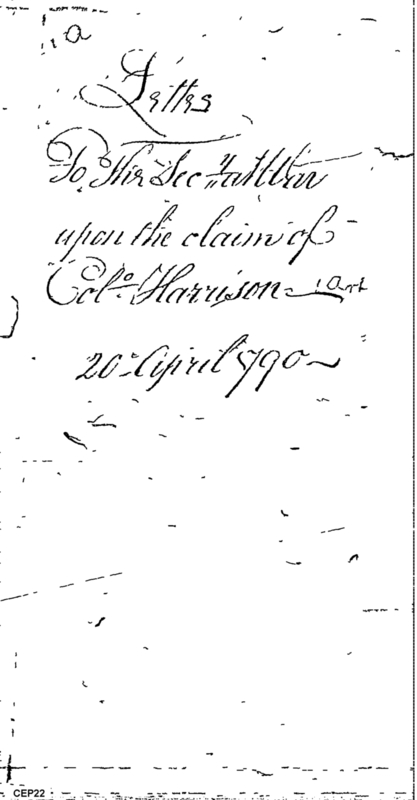 a
Letters
To The Secy at War
upon the claim of
Colo. Harrison - Art
20th April 1790
CEP22